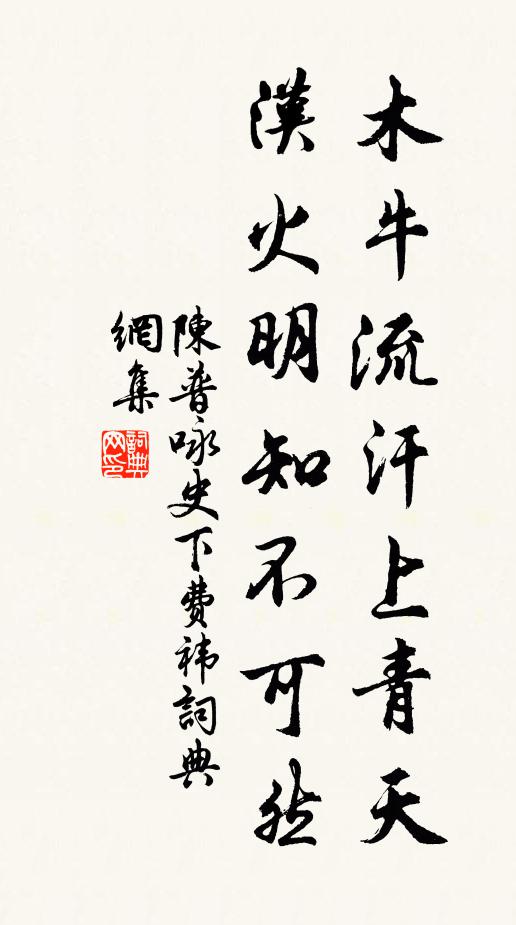 木牛流汗上青天
漢火明知不可然
陳普咏史下費禕詞典
網集
詞典网印